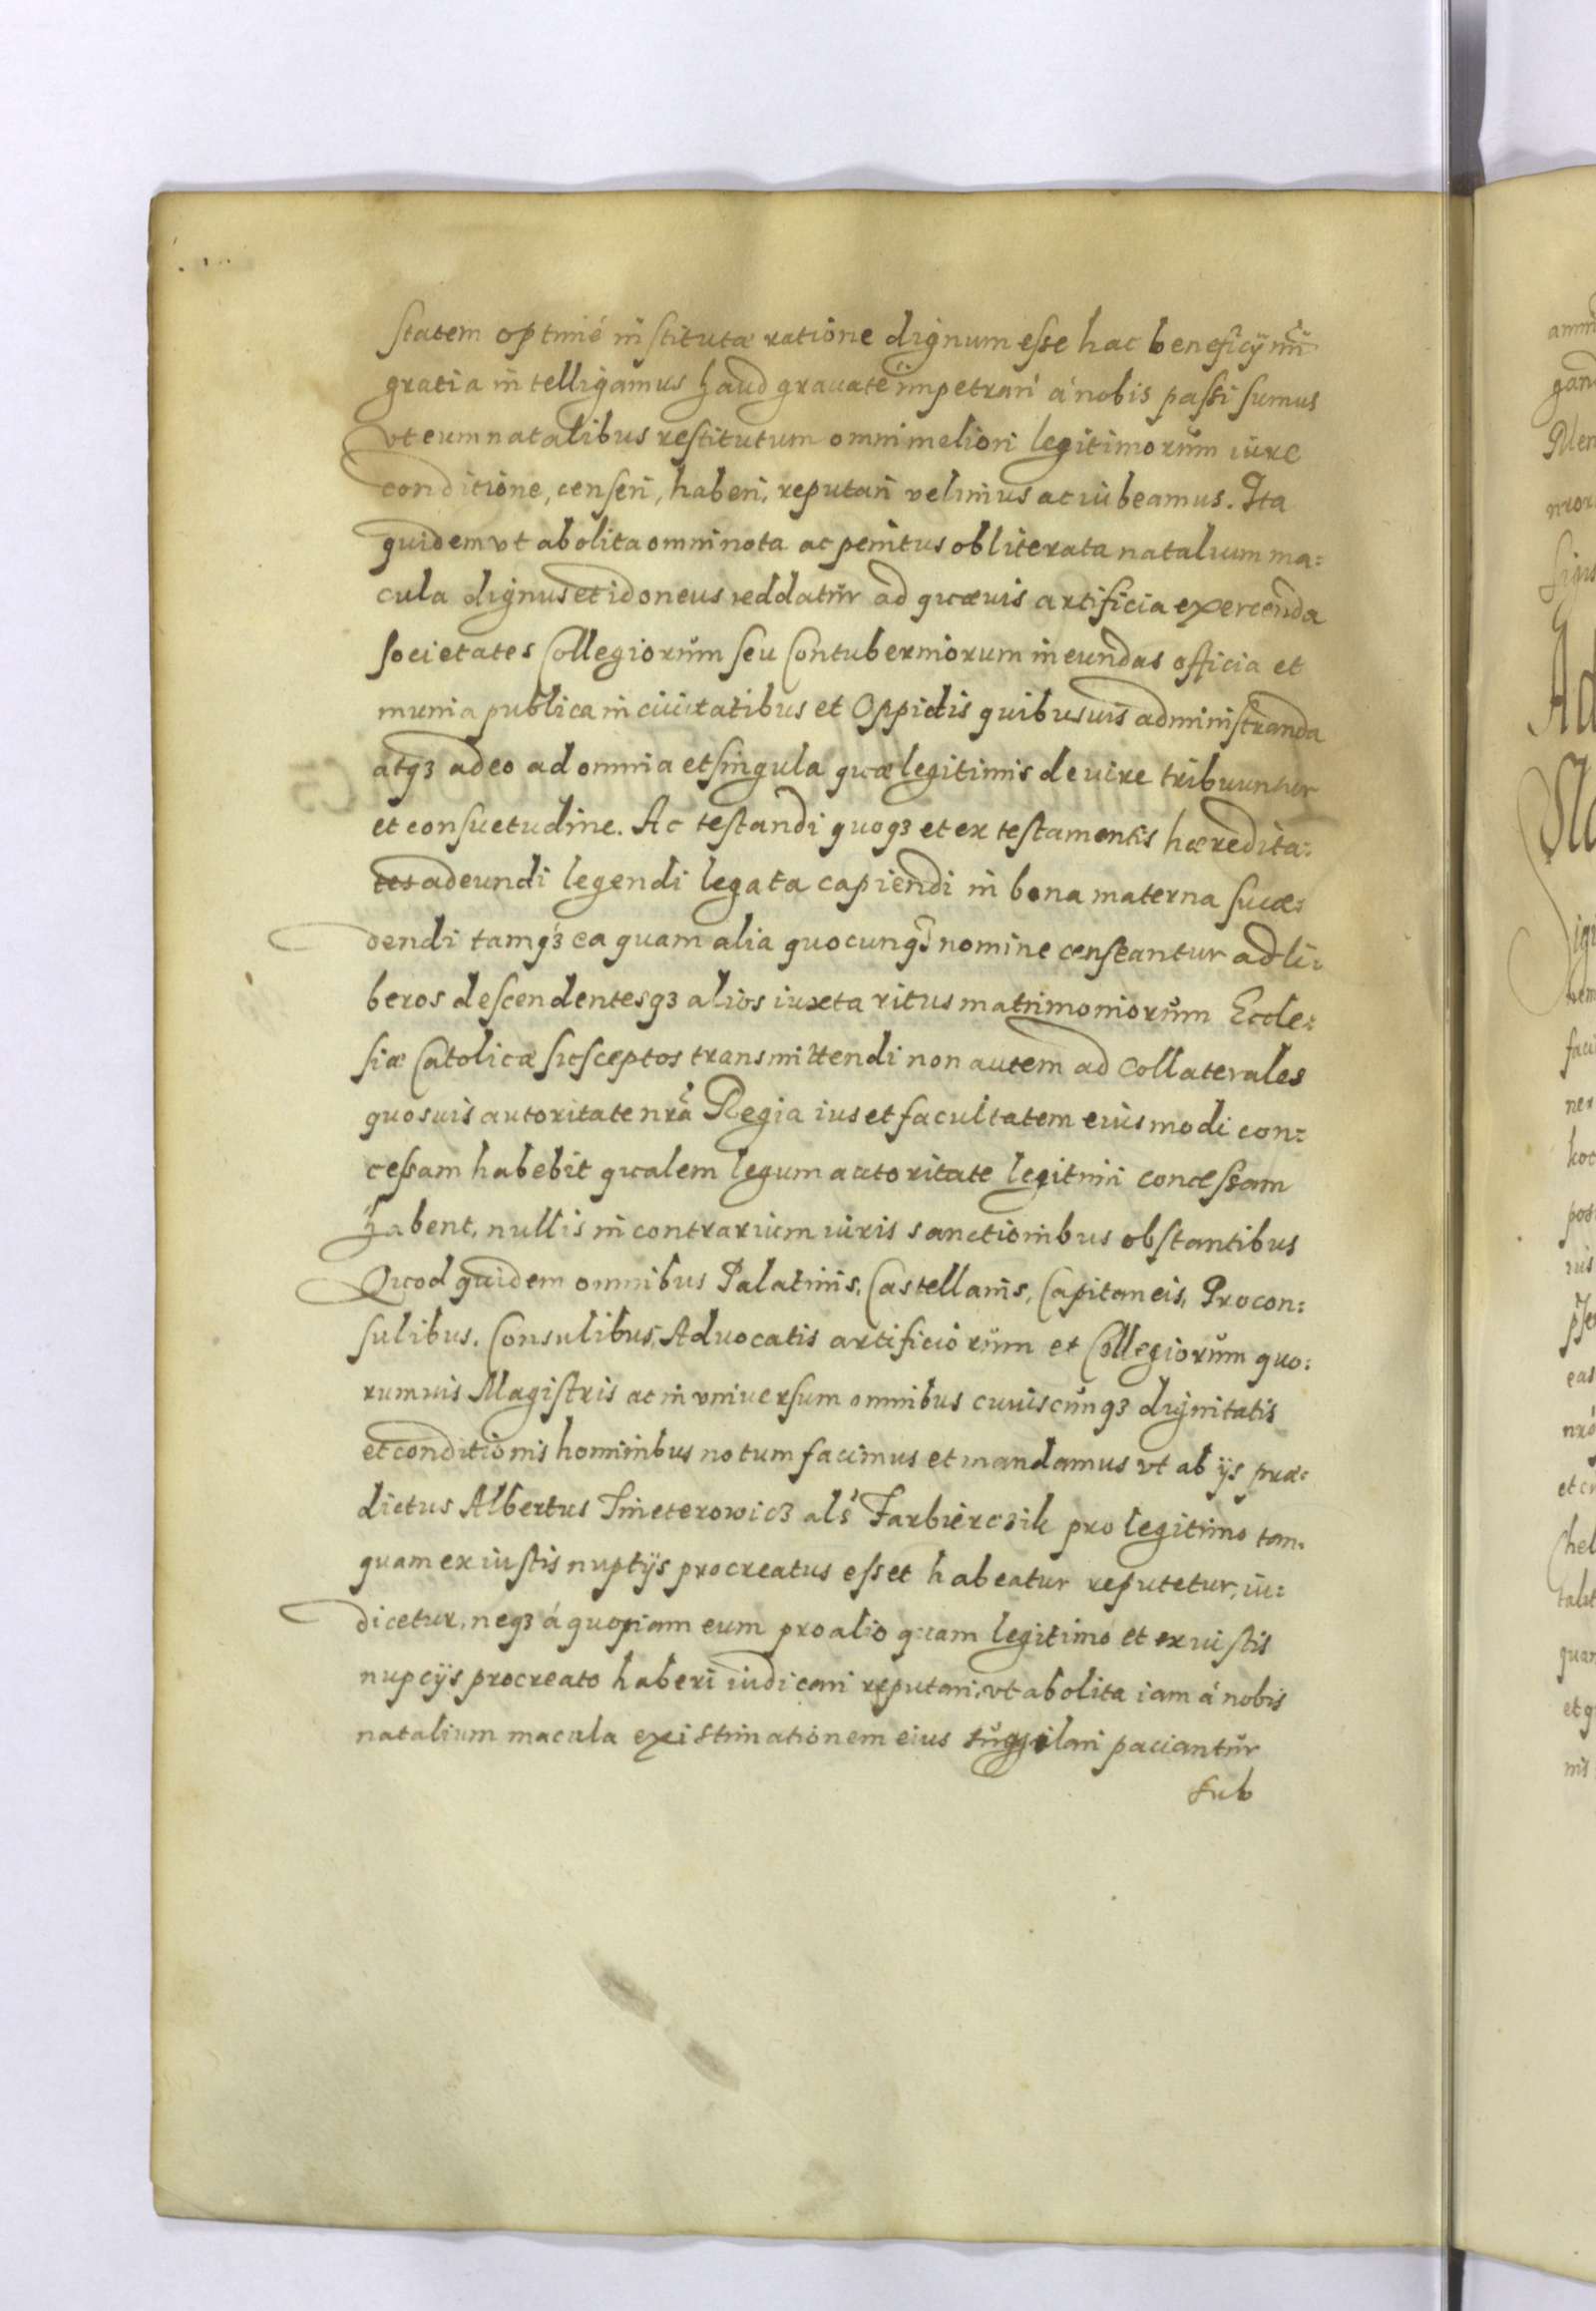 statem optimé institutæ ratione dignum esse hac beneficij nri
gratia intelligamus haud grauaté impetrari á nobis passi sumus
vt eum natalibus restitutum omni meliori legitimorum iure
conditione, censeri, haberi, reputari velimus ac iubeamus. Ita
quidem vt abolita omni nota ac penitus obliterata natalium ma=
cula dignus et idoneus reddatur ad quæuis artificia exercenda
societates Collegiorum seu Contuberniorum ineundas officia et
munia publica in ciuitatibus et Oppidis quibusuis administranda
atqz adeo ad omnia et singula quæ legitimis de iure tribuuntur
et consuetudine. Ac testandi quoqz et ex testamentis hæredita=
tes adeundi legendi legata capiendi in bona materna succe=
dendi tamqz ea quam alia quocunqz nomine censeantur ad li=
beros descendentesqz alios iuxta ritus matrimoniorum Eccle=
siæ Catolicæ susceptos transmittendi non autem ad collaterales
quosuis autoritate nra Regia ius et facultatem eiusmodi con=
cessam habebit qualem legum autoritate legitimi concessam
habent, nullis in contrarium iuris sanctionibus obstantibus
Quod quidem omnibus Palatinis, Castellanis, Capitaneis, Procon=
sulibus, Consulibus, Aduocatis artificiorum et Collegiorum quo=
rumuis Magistris ac in vniuersum omnibus cuuiscunqz dignitatis
et conditionis hominibus notum facimus et mandamus vt ab ijs præ=
dictus Albertus Imeterowicz als Farbierczik pro legitimo tan=
quam ex iustis nuptijs procreatus esset habeatur reputetur, iu=
dicetur, neqz á quopiam eum pro alio quam legitimo et ex iustis
nupcijs procreato haberi iudicari reputari, vt abolita iam á nobis
natalium macula existimationem eius suggilari paciantur
sub